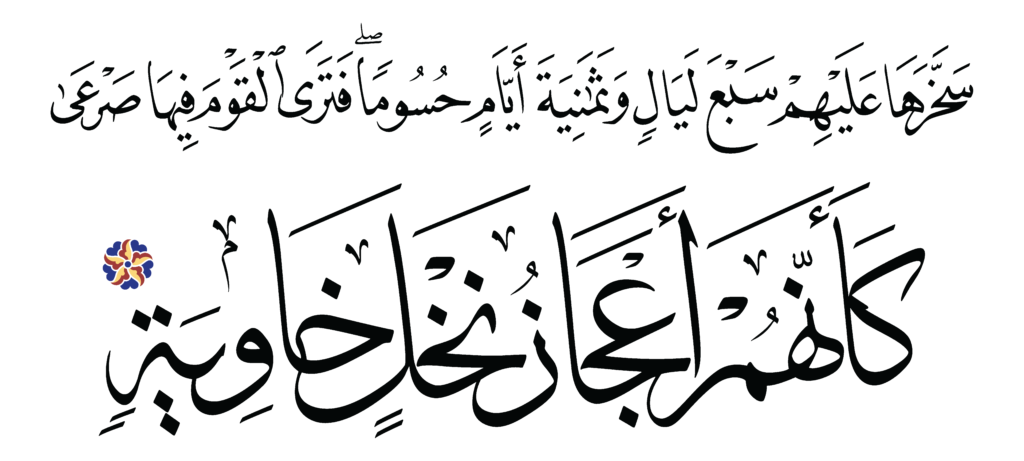 سَخَّرَهَا عَلَيْهِمْ سَبْعَ لَيَالٍ وَثَمَٰنِيَةَ أَيَّامٍ حُسُومًاۖ فَتَرَى ٱلْقَوْمَ فِيهَا صَرْعَىٰ
كَأَنَّهُمْ أَعْجَازُ نَخْلٍ خَاوِيَةٍ